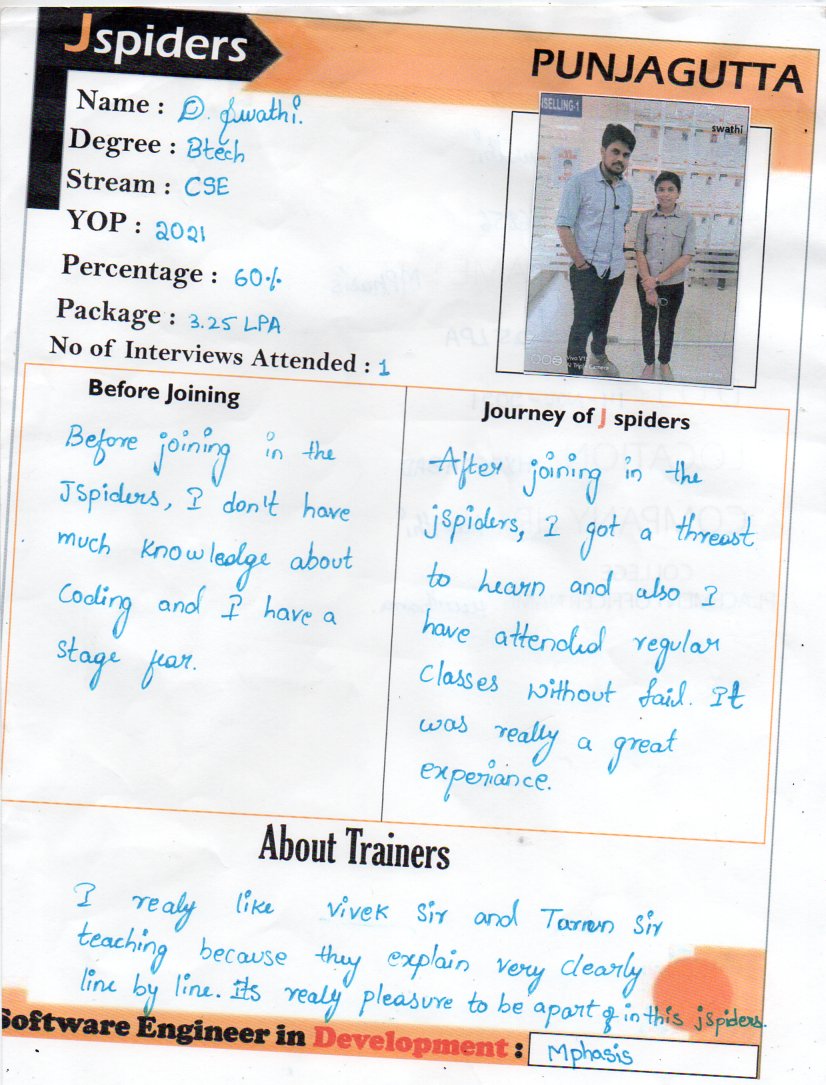 Jspiders
PUNJAGUTTA
Name : D. Swathi.
Degree : Btech
Stream : CSE
YOP : 2021
Percentage : 60%
Package : 3.25 LPA
No of Interviews Attended : 1
SELLING-1
swathi
Vivo V15
AI Triple Camera
Before Joining
Before joining in the
JSpiders, I don't have
much knowledge about
Coding and I have a
Stage fear.
Journey of J spiders
After joining in the
jspiders, I got a threast
to learn and also I
have attended regular
Classes without fail. It
was really a great
experiance.
About Trainers
I realy like vivek Sir and Tarun Sir
teaching because they explain very clearly
line by line. Its realy pleasure to be apart of in this jspiders.
Software Engineer in Development : Mphasis